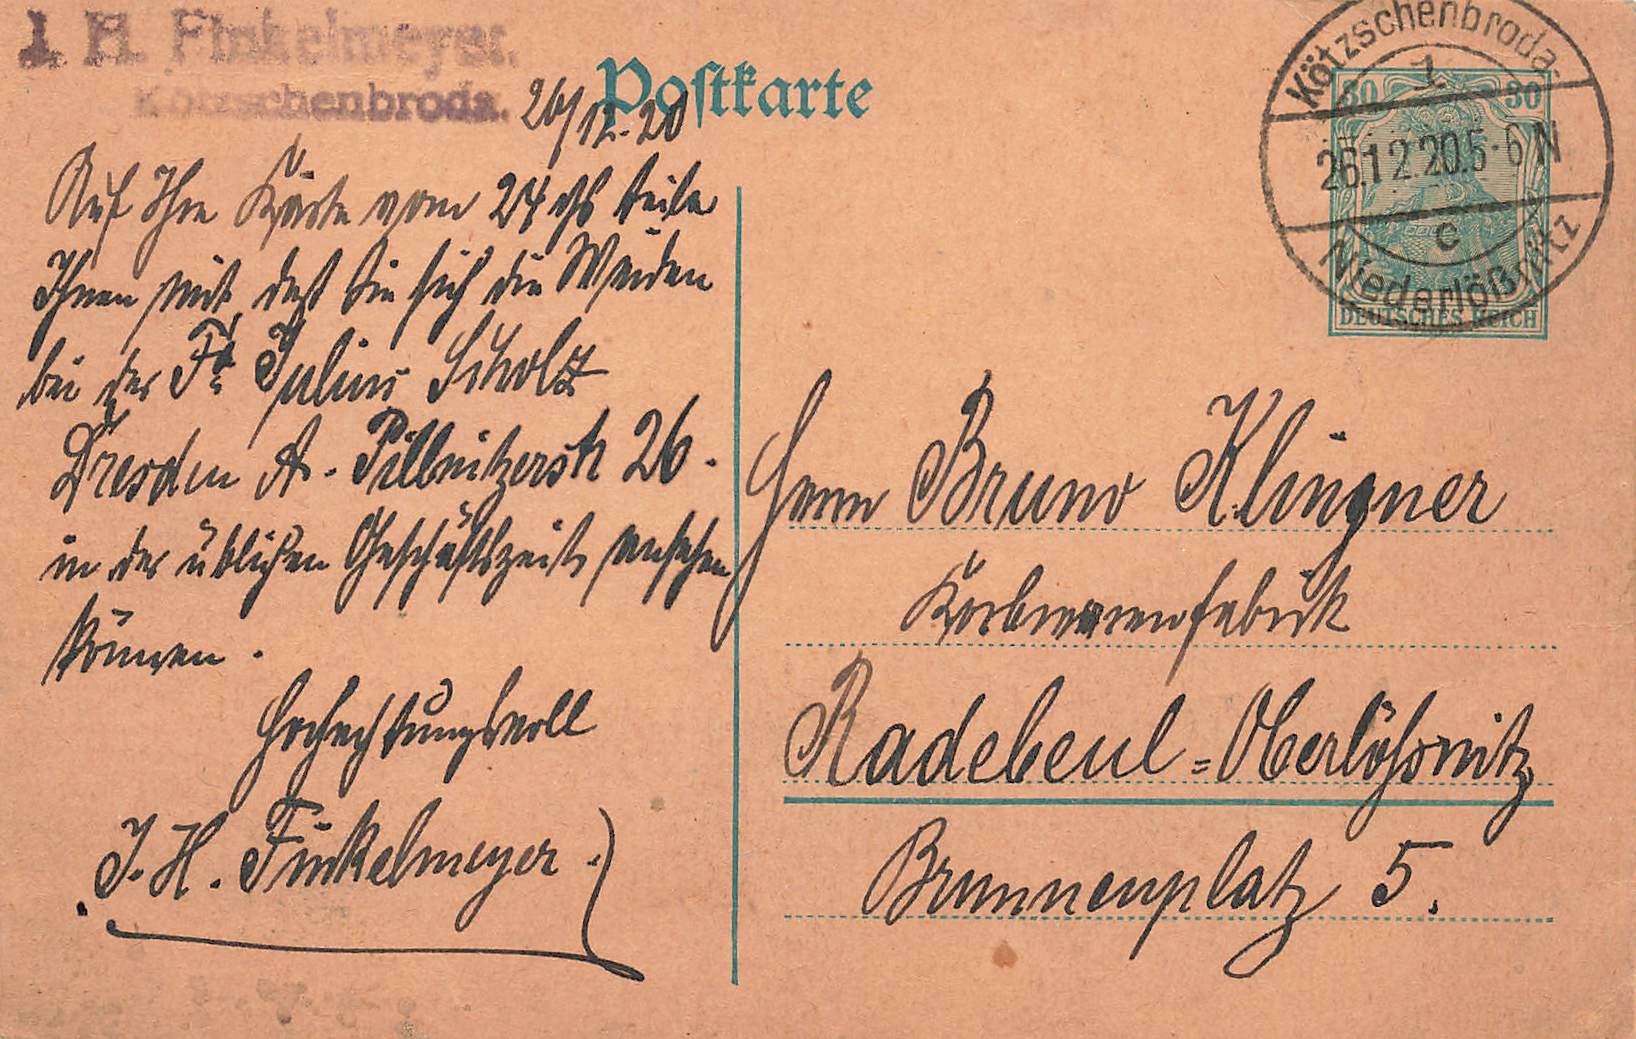 J. H. Finkelmeyer.
Kötzschenbroda.
Postkarte
26/12.20
Auf Ihre Karte vom 24 ds teile
Ihnen mit, daß Sie sich die Weiden
bei der Fa. Julius Scholz
Dresden A. Pillnitzerstr 26.
in der üblichen Geschäftszeit ansehen
können.
Hochachtungsvoll
J. H. Finkelmeyer.
Kötzschenbroda
1
30 30
26.12.20.5-6N
c
Niederlößnitz
DEUTSCHES REICH
Herrn Bruno Klingner
Korbwarenfabrik
Radebeul=Oberlößnitz
Brunnenplatz 5.